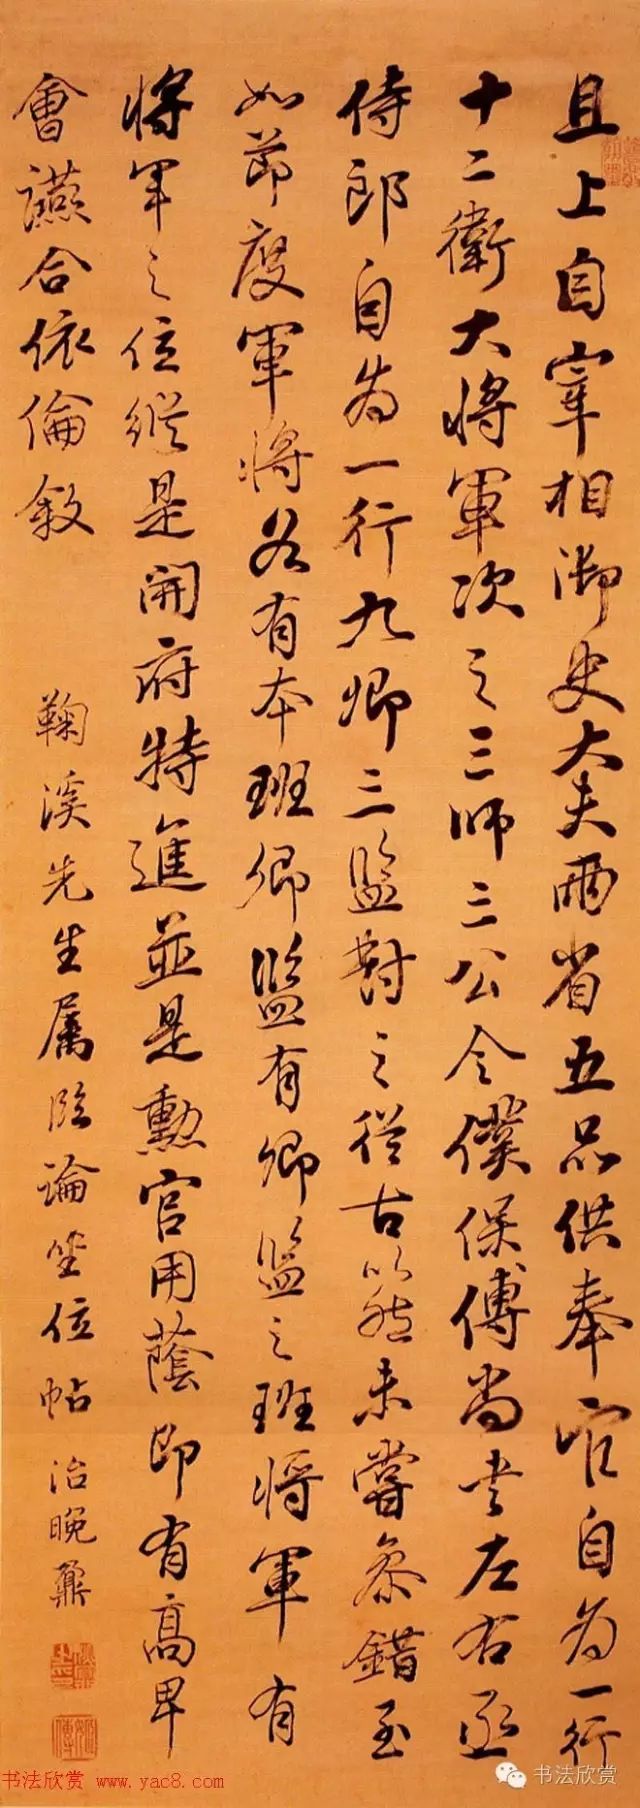 且上自宰相御史大夫兩省五品供奉官自為一行
十二衛大將軍次之三師三公令僕保傅尚書左右丞
侍郎自為一行九卿三監對之從古以然未嘗參錯至
如節度軍將各有本班卿監有卿監之班將軍有
將軍之位縱是開府特進並是勳官用蔭即有高卑
會讌合依倫敘
鞠溪先生屬臨論坐位帖 治晚鼐
书法欣赏 www.yac8.com
书法欣赏